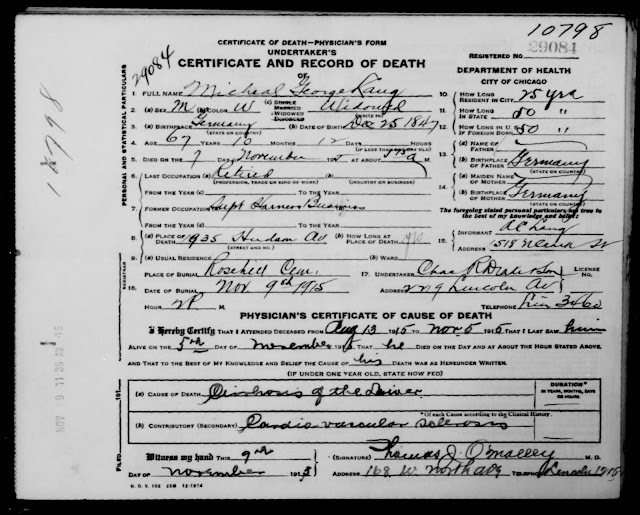 10798
CERTIFICATE OF DEATH—PHYSICIAN'S FORM
UNDERTAKER'S
CERTIFICATE AND RECORD OF DEATH
OF
REGISTERED NO. 29084
29084
10798
DEPARTMENT OF HEALTH
CITY OF CHICAGO
PERSONAL AND STATISTICAL PARTICULARS
1. FULL NAME Micheal George Lang
2. (a) SEX M (b) COLOR W (c) SINGLE MARRIED WIDOWED DIVORCED Widowed
3. (a) BIRTHPLACE Germany (STATE OR COUNTRY) (b) DATE OF BIRTH Dec 25 1847
4. AGE 67 YEARS 10 MONTHS 12 DAYS HOURS
(IF LESS THAN 1 DAY OLD)
5. DIED ON THE 7 DAY November 191 5 AT ABOUT A M
6. LAST OCCUPATION Retired
(PROFESSION, TRADE OR KIND OF WORK) (INDUSTRY OR BUSINESS)
FROM THE YEAR (C) TO THE YEAR
7. FORMER OCCUPATION Harness Business
FROM THE YEAR (C) TO THE YEAR
8. (a) PLACE OF DEATH 1935 Hudson Av (b) HOW LONG AT PLACE OF DEATH
(STREET AND NO.)
10. HOW LONG RESIDENT IN CITY 25 yrs
11. HOW LONG IN STATE 50 "
12. HOW LONG IN U.S. IF FOREIGN BORN 50 "
13. (a) NAME OF FATHER
(b) BIRTHPLACE OF FATHER Germany
(STATE OR COUNTRY)
14. (a) MAIDEN NAME OF MOTHER
(b) BIRTHPLACE OF MOTHER Germany
(STATE OR COUNTRY)
The foregoing stated personal particulars are true to the best of my knowledge and belief:
15. INFORMANT A C Lang
ADDRESS 1518 N Clark St
REGISTRAR
9. (a) USUAL RESIDENCE (b) WARD
PLACE OF BURIAL Rosehill Cem.
16. DATE OF BURIAL Nov. 9th 1915
HOUR 2P M
17. UNDERTAKER Chas R & Son LICENSE NO.
ADDRESS Lincoln Av
TELEPHONE Lin 3460
PHYSICIAN'S CERTIFICATE OF CAUSE OF DEATH
I Hereby Certify THAT I ATTENDED DECEASED FROM Aug 13 1915 TO Nov 5 1915 THAT I LAST SAW him
ALIVE ON THE 5th DAY OF November 1915 THAT he DIED ON THE DAY AND AT ABOUT THE HOUR STATED ABOVE,
AND THAT TO THE BEST OF MY KNOWLEDGE AND BELIEF THE CAUSE OF his DEATH WAS AS HEREUNDER WRITTEN.
(IF UNDER ONE YEAR OLD, STATE HOW FED)
NOV 9 11 36 AM
191
(a) CAUSE OF DEATH Cirrhosis of the Liver
DURATION*
IN YEARS, MONTHS, DAYS OR HOURS
*Of each Cause according to the Clinical History.
(b) CONTRIBUTORY (SECONDARY) Cardio vascular sclerosis
FILED
Witness my hand THIS 9th
DAY OF November 1915
(SIGNATURE) Thomas J. O'Malley M. D.
ADDRESS 168 W North Ave TELEPHONE Lincoln 1915
H. D. V. 102 25M 12-1914